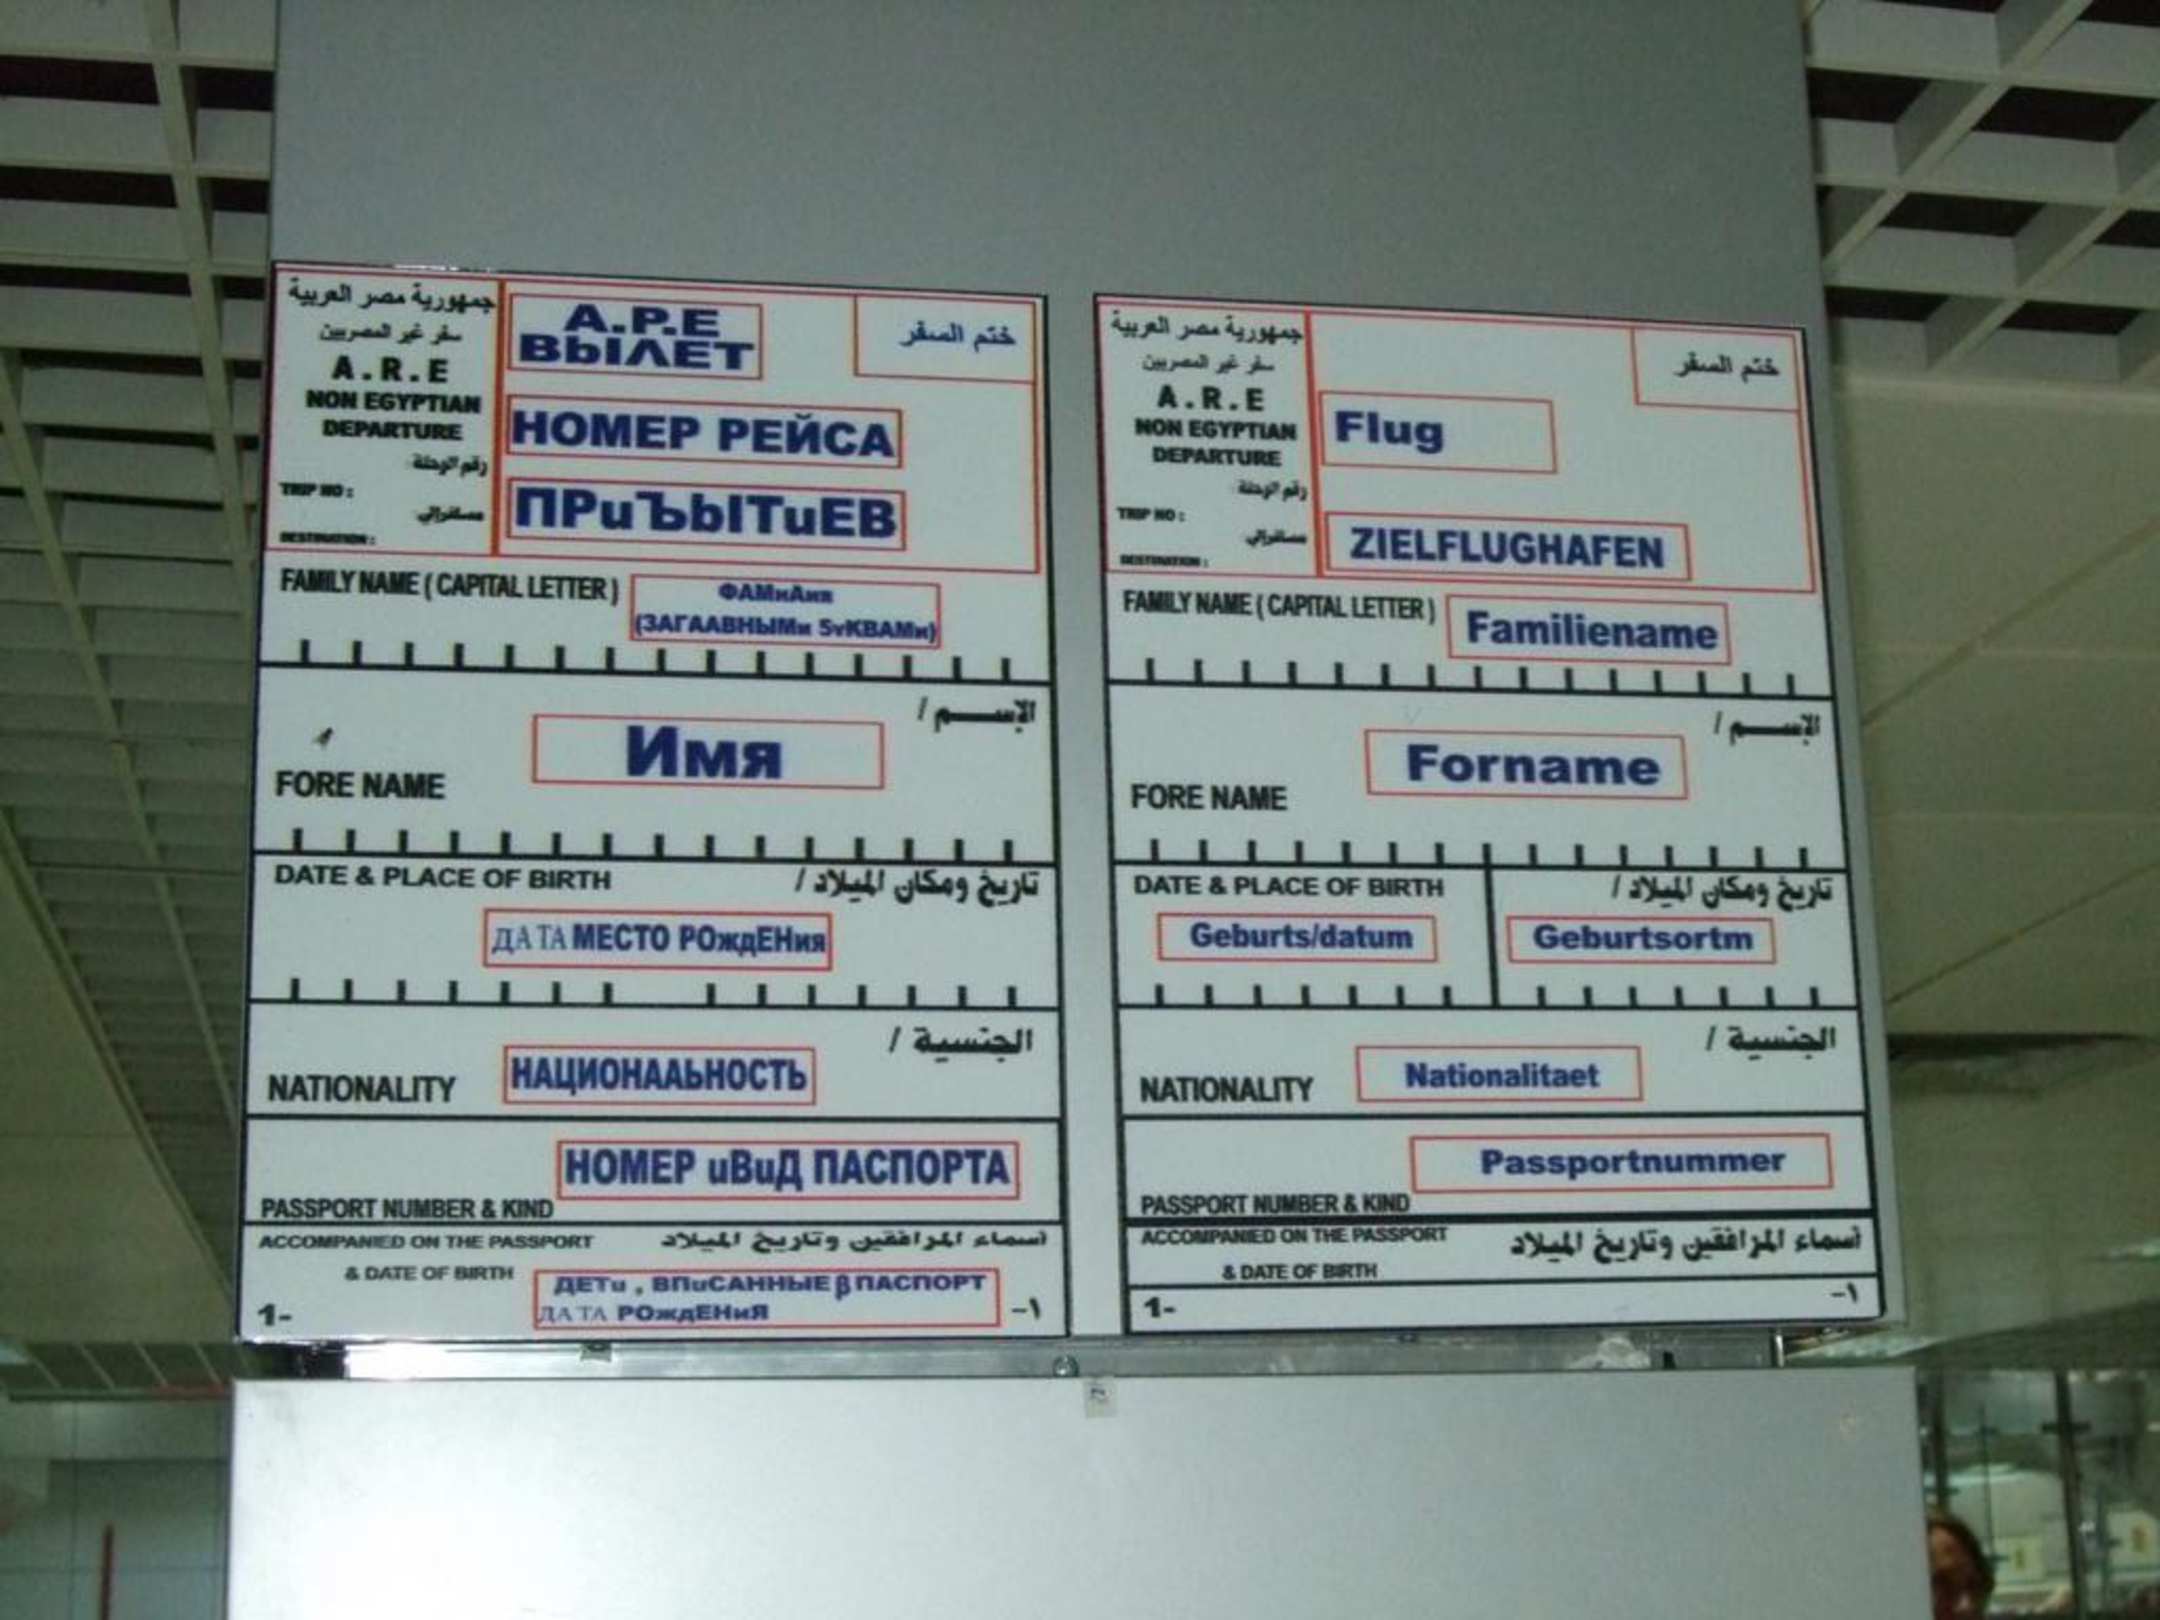 جمهورية مصر العربية
سفر غير المصريين
A.R.E
NON EGYPTIAN
DEPARTURE
رقم الرحلة
TRIP NO :
مسافر إلى
DESTINATION :
A.P.E
ВЫΛЕТ
ختم السفر
НОМЕР РЕЙСА
ПРиЪЫТиЕВ
FAMILY NAME ( CAPITAL LETTER )
ФАМиАия
(ЗАГААВНЫМи 5vКВАМи)
الإسم /
Имя
FORE NAME
DATE & PLACE OF BIRTH
تاريخ ومكان الميلاد /
ДАТА МЕСТО РОждЕНия
الجنسية /
NATIONALITY
НАЦИОНААЬНОСТЬ
НОМЕР иВиД ПАСПОРТА
PASSPORT NUMBER & KIND
ACCOMPANIED ON THE PASSPORT
أسماء المرافقين وتاريخ الميلاد
& DATE OF BIRTH
ДЕТи , ВПиСАННЫЕ β ПАСПОРТ
ДАТА РОждЕНиЯ
1-
١-
جمهورية مصر العربية
سفر غير المصريين
A.R.E
NON EGYPTIAN
DEPARTURE
رقم الرحلة
TRIP NO :
مسافر إلى
DESTINATION :
ختم السفر
Flug
ZIELFLUGHAFEN
FAMILY NAME ( CAPITAL LETTER )
Familiename
الإسم /
Forname
FORE NAME
DATE & PLACE OF BIRTH
تاريخ ومكان الميلاد /
Geburts/datum
Geburtsortm
الجنسية /
NATIONALITY
Nationalitaet
Passportnummer
PASSPORT NUMBER & KIND
ACCOMPANIED ON THE PASSPORT
أسماء المرافقين وتاريخ الميلاد
& DATE OF BIRTH
1-
١-